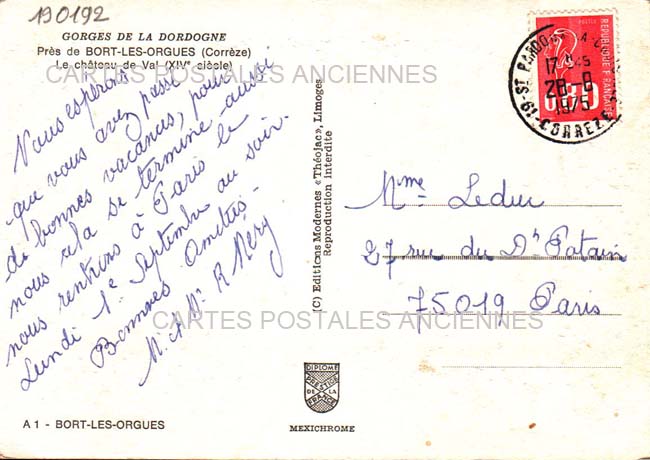 190192
GORGES DE LA DORDOGNE
Près de BORT-LES-ORGUES (Corrèze)
Le château de Val (XIVe siècle)
CARTES POSTALES ANCIENNES
Nous espérons
que vous avez passé
de bonnes vacances, pour
nous cela se termine aussi
nous rentrons à Paris le
Lundi 1e Septembre au soir.
Bonnes Amitiés -
M. et Me R Méry
(C) Editions Modernes «Théojac», Limoges
Reproduction Interdite
POSTES
REPUBLIQUE FRANCAISE
0,80
17 H 45
28 - 8
1975
19 - CORREZE
Mme Leduc
27 rue du Dr Potain
75019 Paris
CARTES POSTALES ANCIENNES
DIPLOME
PRESTIGE
DE LA
FRANCE
MEXICHROME
A 1 - BORT-LES-ORGUES